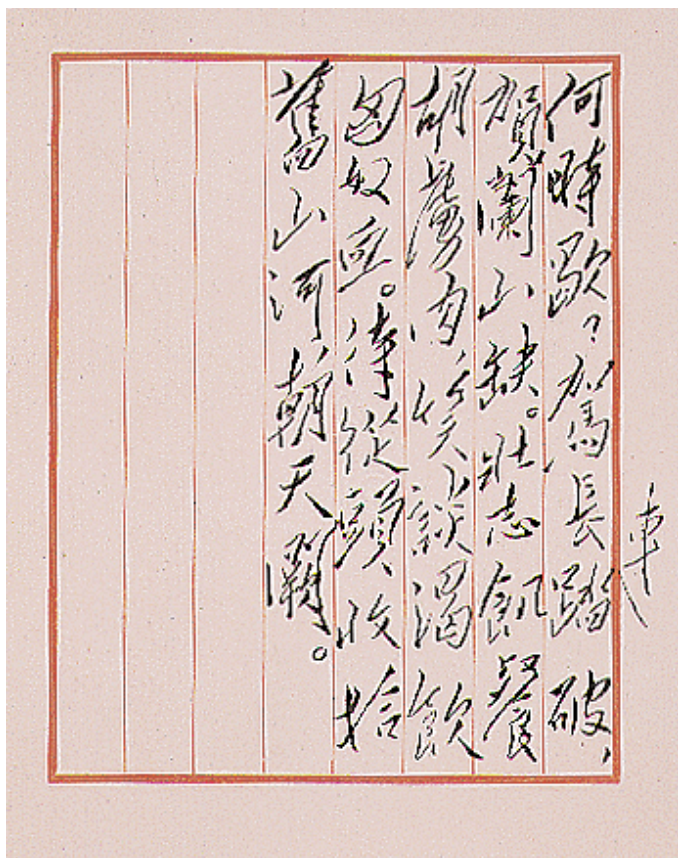 何時歇？駕長車踏破、
賀蘭山缺。壯志飢餐
胡虜肉、笑談渴飲
匈奴血。待從頭、收拾
舊山河、朝天闕。